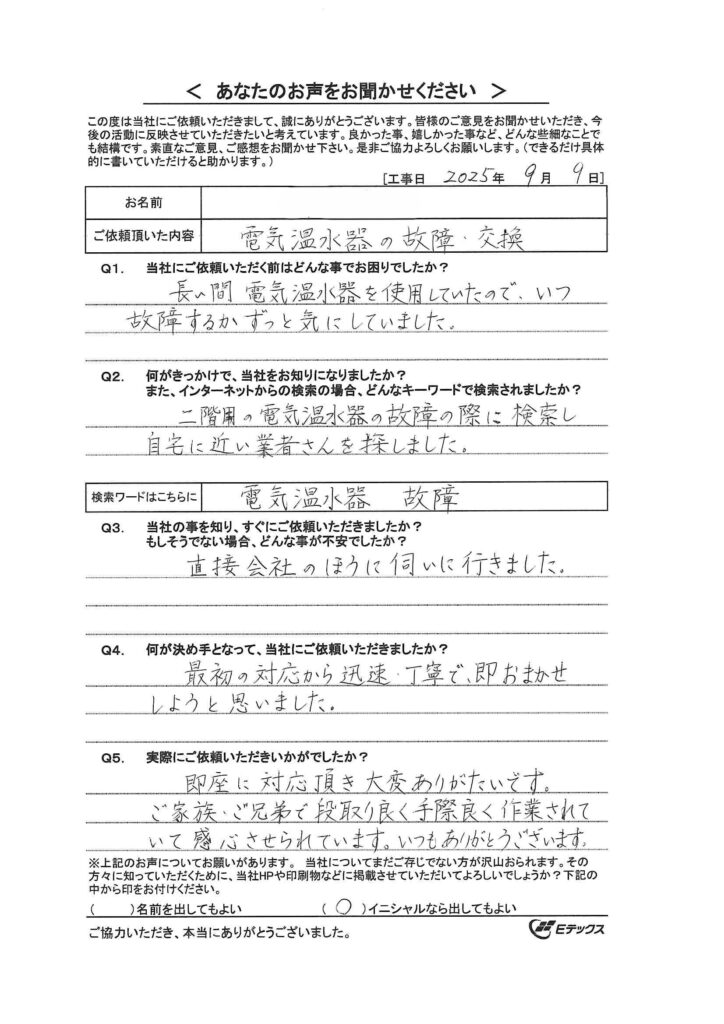 ＜ あなたのお声をお聞かせください ＞
この度は当社にご依頼いただきまして、誠にありがとうございます。皆様のご意見をお聞かせいただき、今
後の活動に反映させていただきたいと考えています。良かった事、嬉しかった事など、どんな些細なことで
も結構です。素直なご意見、ご感想をお聞かせ下さい。是非ご協力よろしくお願いします。（できるだけ具体
的に書いていただけると助かります。）
[工事日 2025年 9月 9日]
お名前
ご依頼頂いた内容 電気温水器の故障・交換
Q1. 当社にご依頼いただく前はどんな事でお困りでしたか？
長い間 電気温水器を使用していたので、いつ
故障するか ずっと気にしていました。
Q2. 何がきっかけで、当社をお知りになりましたか？
また、インターネットからの検索の場合、どんなキーワードで検索されましたか？
二階用の電気温水器の故障の際に 検索し
自宅に近い業者さんを探しました。
検索ワードはこちらに 電気温水器 故障
Q3. 当社の事を知り、すぐにご依頼いただきましたか？
もしそうでない場合、どんな事が不安でしたか？
直接会社のほうに伺いに行きました。
Q4. 何が決め手となって、当社にご依頼いただきましたか？
最初の対応から迅速・丁寧で、即おまかせ
しようと思いました。
Q5. 実際にご依頼いただきいかがでしたか？
即座に対応頂き大変ありがたいです。
ご家族・ご兄弟で段取り良く手際良く作業されて
いて感心させられています。いつもありがとうございます。
※上記のお声についてお願いがあります。 当社についてまだご存じでない方が沢山おられます。その
方々に知っていただくために、当社HPや印刷物などに掲載させていただいてよろしいでしょうか？下記の
中から印をお付けください。
（ ）名前を出してもよい （ ○ ）イニシャルなら出してもよい
ご協力いただき、本当にありがとうございました。 Eテックス